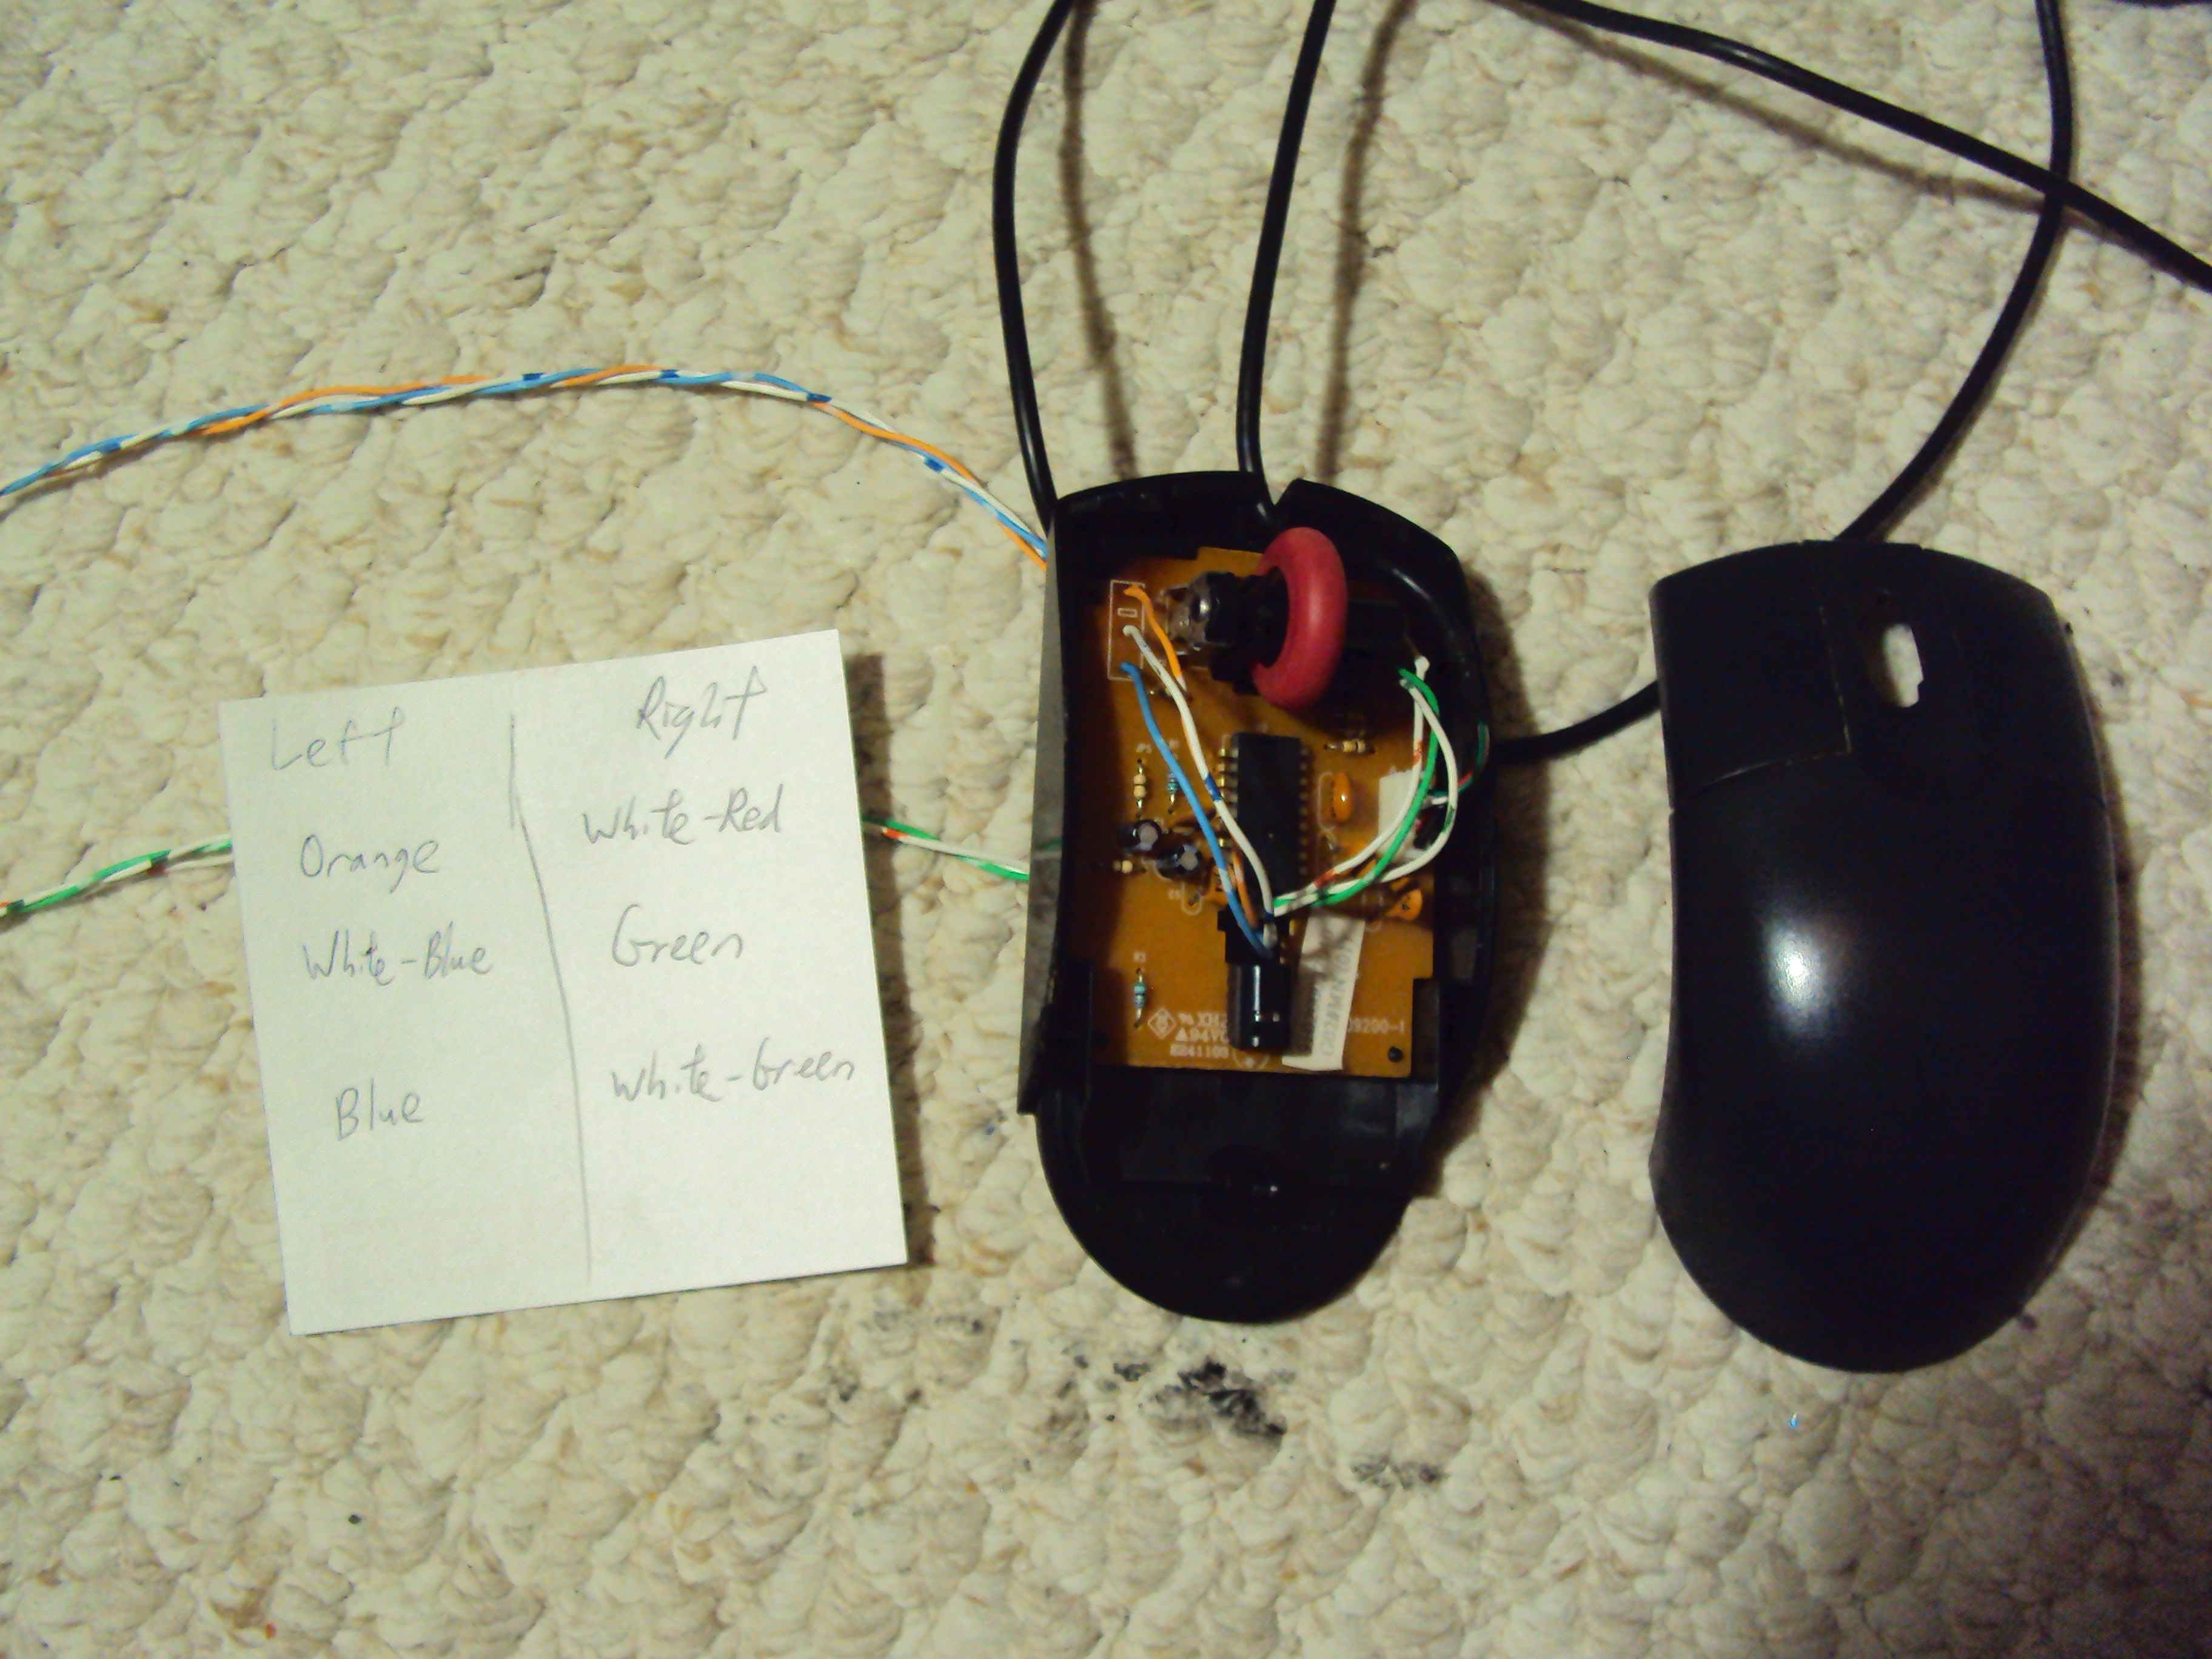 Left
Right
Orange
White-Red
White-Blue
Green
Blue
White-Green
R3
94V0
E241105